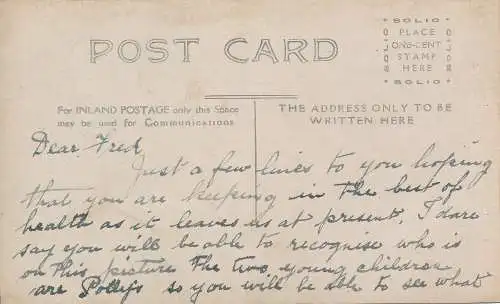 POST CARD
SOLIO
PLACE
ONE-CENT
STAMP
HERE
SOLIO
For INLAND POSTAGE only this Space
may be used for Communications
THE ADDRESS ONLY TO BE
WRITTEN HERE
Dear Fred
Just a few lines to you hoping
that you are keeping in the best of
health as it leaves us at present. I dare
say you will be able to recognise who is
on this picture The two young children
are Polly's so you will be able to see what